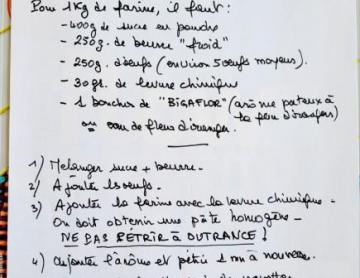 Pour 1Kg de farine, il faut:
- 400g de sucre en poudre
- 250g. de beurre "froid"
- 250g. d'oeufs (environ 5 oeufs moyens).
- 30gr. de levure chimique
- 1 bouchon de "BIGAFLOR" (arôme gateaux à
la fleur d'oranger)
ou eau de fleur d'oranger.
1) Mélanger sucre + beurre.
2) Ajouter les oeufs.
3) Ajouter la farine avec la levure chimique.
On doit obtenir une pâte homogène.
NE PAS PÉTRIR À OUTRANCE!
4) Ajouter l'arôme et pétrir 1 mn à nouveau.